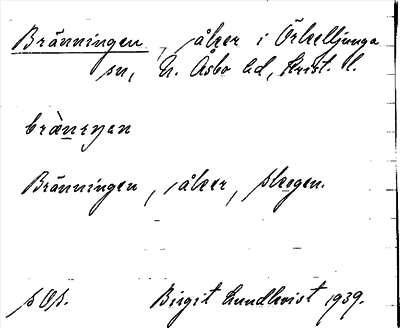 Bränningen, åker i Örkelljunga
sn, N. Åsbo hd, Krist. l.
bräningen
Bränningen, åker, skogen.
s Os. Birgit Lundkvist 1939.